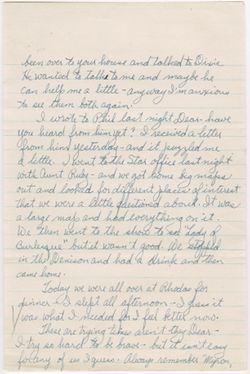 been over to your house and talked to Dixie.
He wanted to talk to me and maybe he
can help me a little - anyway I'm anxious
to see them both again.
I wrote to Phil last night Dear - have
you heard from him yet? I received a letter
from him yesterday - and it puzzled me
a little. I went to the Star office last night
with Aunt Ruby - and we got some big maps
out and looked for different places of interest
that we were a little questioned about. It was
a large map and had everything on it.
We then went to the show to see "Lady of
Burlesque" but it wasn't good. We stopped
in the Denison and had a drink and then
came home.
Today we were all over at Rhodas for
dinner - I slept all afternoon - I guess it
was what I needed for I feel better now.
These are trying times aren't they Dear -
I try so hard to be brave - but it isn't easy
for any of us I guess. Always remember Myron,